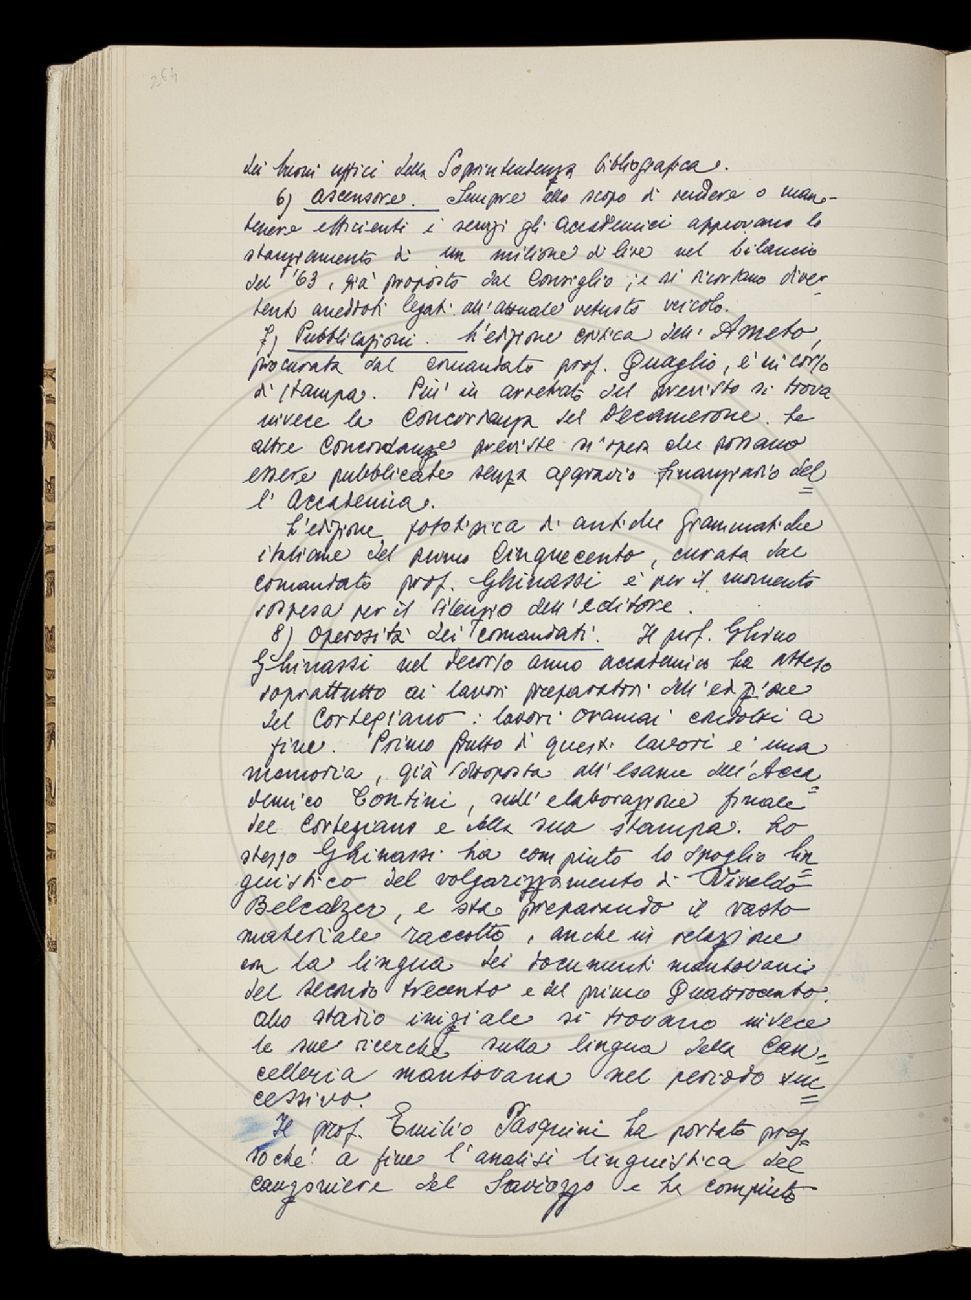 264
dei buoni uffici della Soprintendenza bibliografica.
6) Ascensore. Sempre allo scopo di rendere o man-
tenere efficienti i servizi gli Accademici approvano lo
stanziamento di un milione di lire nel bilancio
del '63, già proposto dal Consiglio; e si ricordano diver-
tenti aneddoti legati all'attuale vetusto veicolo.
7) Pubblicazioni. L'edizione critica dell'Ameto,
procurata dal comandato prof. Quaglio, è in corso
di stampa. Più in arretrato del previsto si trova
invece la Concordanza del Decamerone. Le
altre Concordanze previste si spera che possano
essere pubblicate senza aggravio finanziario del=
l'Accademia.
L'edizione fototipica di antiche grammatiche
italiane del primo Cinquecento, curata dal
comandato prof. Ghinassi è per il momento
sospesa per il silenzio dell'editore.
8) Operosità dei comandati. Il prof. Ghino
Ghinassi nel decorso anno accademico ha atteso
soprattutto ai lavori preparatori dell'edizione
del Cortegiano: lavori oramai condotti a
fine. Primo frutto di questi lavori è una
memoria, già sottoposta all'esame dell'Acca=
demico Contini, sull'elaborazione finale
del Cortegiano e della sua stampa. Lo
stesso Ghinassi ha compiuto lo spoglio lin=
guistico del volgarizzamento di Vivaldo
Belcalzer, e sta preparando il vasto
materiale raccolto, anche in relazione
con la lingua dei documenti mantovani
del secondo trecento e del primo Quattrocento.
Allo stadio iniziale si trovano invece
le sue ricerche sulla lingua della Can=
celleria mantovana nel periodo suc=
cessivo.
Il prof. Emilio Pasquini ha portato pres=
soché a fine l'analisi linguistica del
canzoniere del Saviozzo e ha compiuto